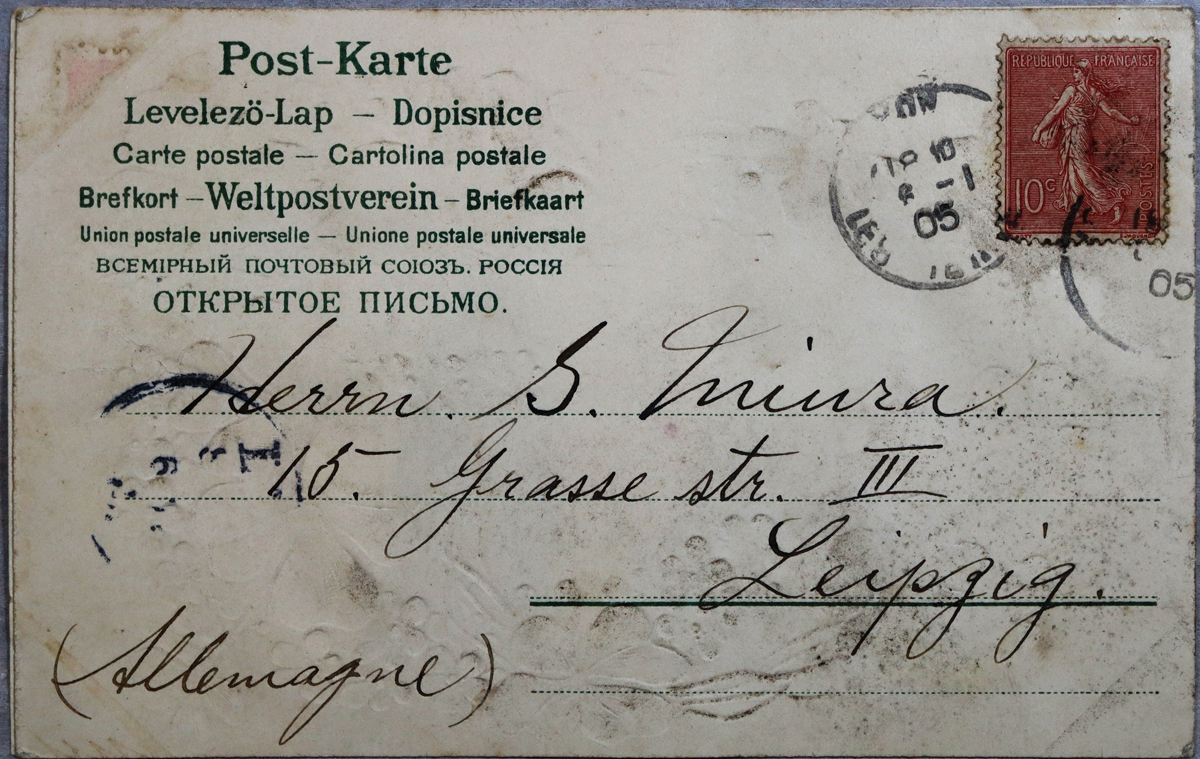 Post-Karte
Levelező-Lap – Dopisnice
Carte postale – Cartolina postale
Brefkort – Weltpostverein – Briefkaart
Union postale universelle – Unione postale universale
ВСЕМІРНЫЙ ПОЧТОВЫЙ СОЮЗЪ. РОССІЯ
ОТКРЫТОЕ ПИСЬМО.
RÉPUBLIQUE FRANÇAISE
10c
POSTES
05
05
Herrn. S. Miura.
15. Grasse str. III
Leipzig.
(Allemagne)